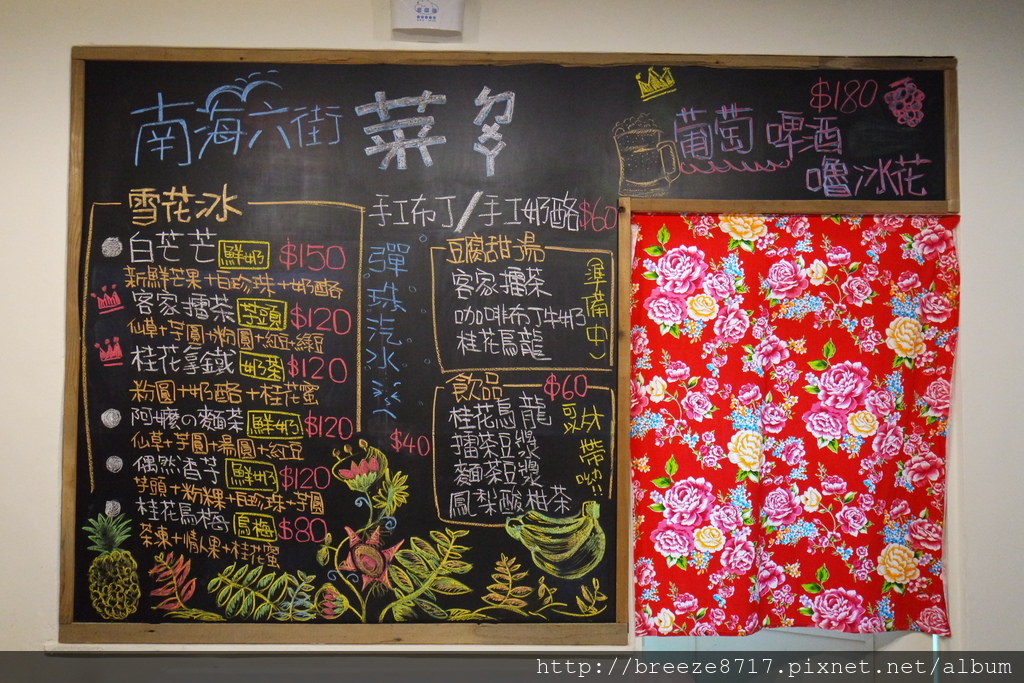 南海六街 菜ㄉㄢ
$180
葡萄啤酒
嚕冰花
雪花冰
白芒芒 鮮奶 $150
新鮮芒果+白珍珠+奶酪
客家擂茶 芋頭 $120
仙草+芋圓+粉圓+紅豆+綠豆
桂花拿鐵 奶茶 $120
粉圓+奶酪+桂花蜜
阿嬤の麵茶 鮮奶 $120
仙草+芋圓+湯圓+紅豆
偶然香芋 鮮奶 $120
芋頭+粉粿+白珍珠+芋圓
桂花烏梅 烏梅 $80
茶凍+情人果+桂花蜜
手工布丁/手工奶酪 $60
彈珠汽水
$40
豆腐甜湯
(準備中)
客家擂茶
咖啡布丁牛奶
桂花烏龍
飲品 $60
可外帶呦!!
桂花烏龍
擂茶豆漿
麵茶豆漿
鳳梨酸柑茶
http://breeze8717.pixnet.net/album